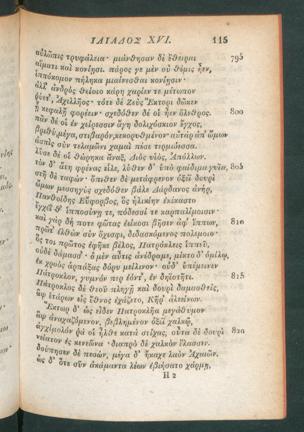 ΙΛΙΑΔΟΣ XVI. 115
αὐλῶπις τρυφάλεια· μιάνθησαν δὲ ἔθειραι 795
αἵματι καὶ κονίησι. πάρος γε μὲν οὐ θέμις ἦεν,
ἱππόκομον πήληκα μιαίνεσθαι κονίησιν·
ἀλλ' ἀνδρὸς θείοιο κάρη χαρίεν τε μέτωπον
ῥύετ', Ἀχιλλῆος· τότε δὲ Ζεὺς Ἕκτορι δῶκεν
ᾗ κεφαλῇ φορέειν· σχεδόθεν δέ οἱ ἦεν ὄλεθρος. 800
πᾶν δέ οἱ ἐν χείρεσσιν ἄγη δολιχόσκιον ἔγχος,
βριθύ, μέγα, στιβαρὸν, κεκορυθμένον· αὐτὰρ ἀπ' ὤμων
ἀσπὶς σὺν τελαμῶνι χαμαὶ πέσε τερμιόεσσα.
λῦσε δέ οἱ θώρηκα ἄναξ, Διὸς υἱὸς, Ἀπόλλων.
τὸν δ' ἄτη φρένας εἷλε, λύθεν δ' ὑπὸ φαίδιμα γυῖα, 805
στῆ δὲ ταφών· ὄπιθεν δὲ μετάφρενον ὀξέϊ δουρὶ
ὤμων μεσσηγὺς σχεδόθεν βάλε Δάρδανος ἀνήρ,
Πανθοΐδης Εὔφορβος, ὃς ἡλικίην ἐκέκαστο
ἔγχεΐ θ' ἱπποσύνῃ τε, πόδεσσί τε καρπαλίμοισιν·
καὶ γὰρ δή ποτε φῶτας ἐείκοσι βῆσεν ἀφ' ἵππων, 810
πρῶτ' ἐλθὼν σὺν ὄχεσφι, διδασκόμενος πολέμοιο·
ὅς τοι πρῶτος ἐφῆκε βέλος, Πατρόκλεις ἱππεῦ,
οὐδὲ δάμασσ'· ὁ μὲν αὖτις ἀνέδραμε, μίκτο δ' ὁμίλῳ,
ἐκ χροὸς ἁρπάξας δόρυ μείλινον· οὐδ' ὑπέμεινεν
Πάτροκλον, γυμνόν περ ἐόντ', ἐν δηϊοτῆτι. 815
Πάτροκλος δὲ θεοῦ πληγῇ καὶ δουρὶ δαμασθεὶς,
ἂψ ἑτάρων εἰς ἔθνος ἐχάζετο, Κῆρ' ἀλεείνων.
Ἕκτωρ δ' ὡς εἶδεν Πατροκλῆα μεγάθυμον
ἂψ ἀναχαζόμενον, βεβλημένον ὀξέϊ χαλκῷ,
ἀγχίμολόν ῥά οἱ ἦλθε κατὰ στίχας, οὖτα δὲ δουρὶ 820
νείατον ἐς κενεῶνα· διαπρὸ δὲ χαλκὸν ἔλασσεν.
δούπησεν δὲ πεσὼν, μέγα δ' ἤκαχε λαὸν Ἀχαιῶν.
ὡς δ' ὅτε σῦν ἀκάμαντα λέων ἐβιήσατο χάρμῃ,
H 2